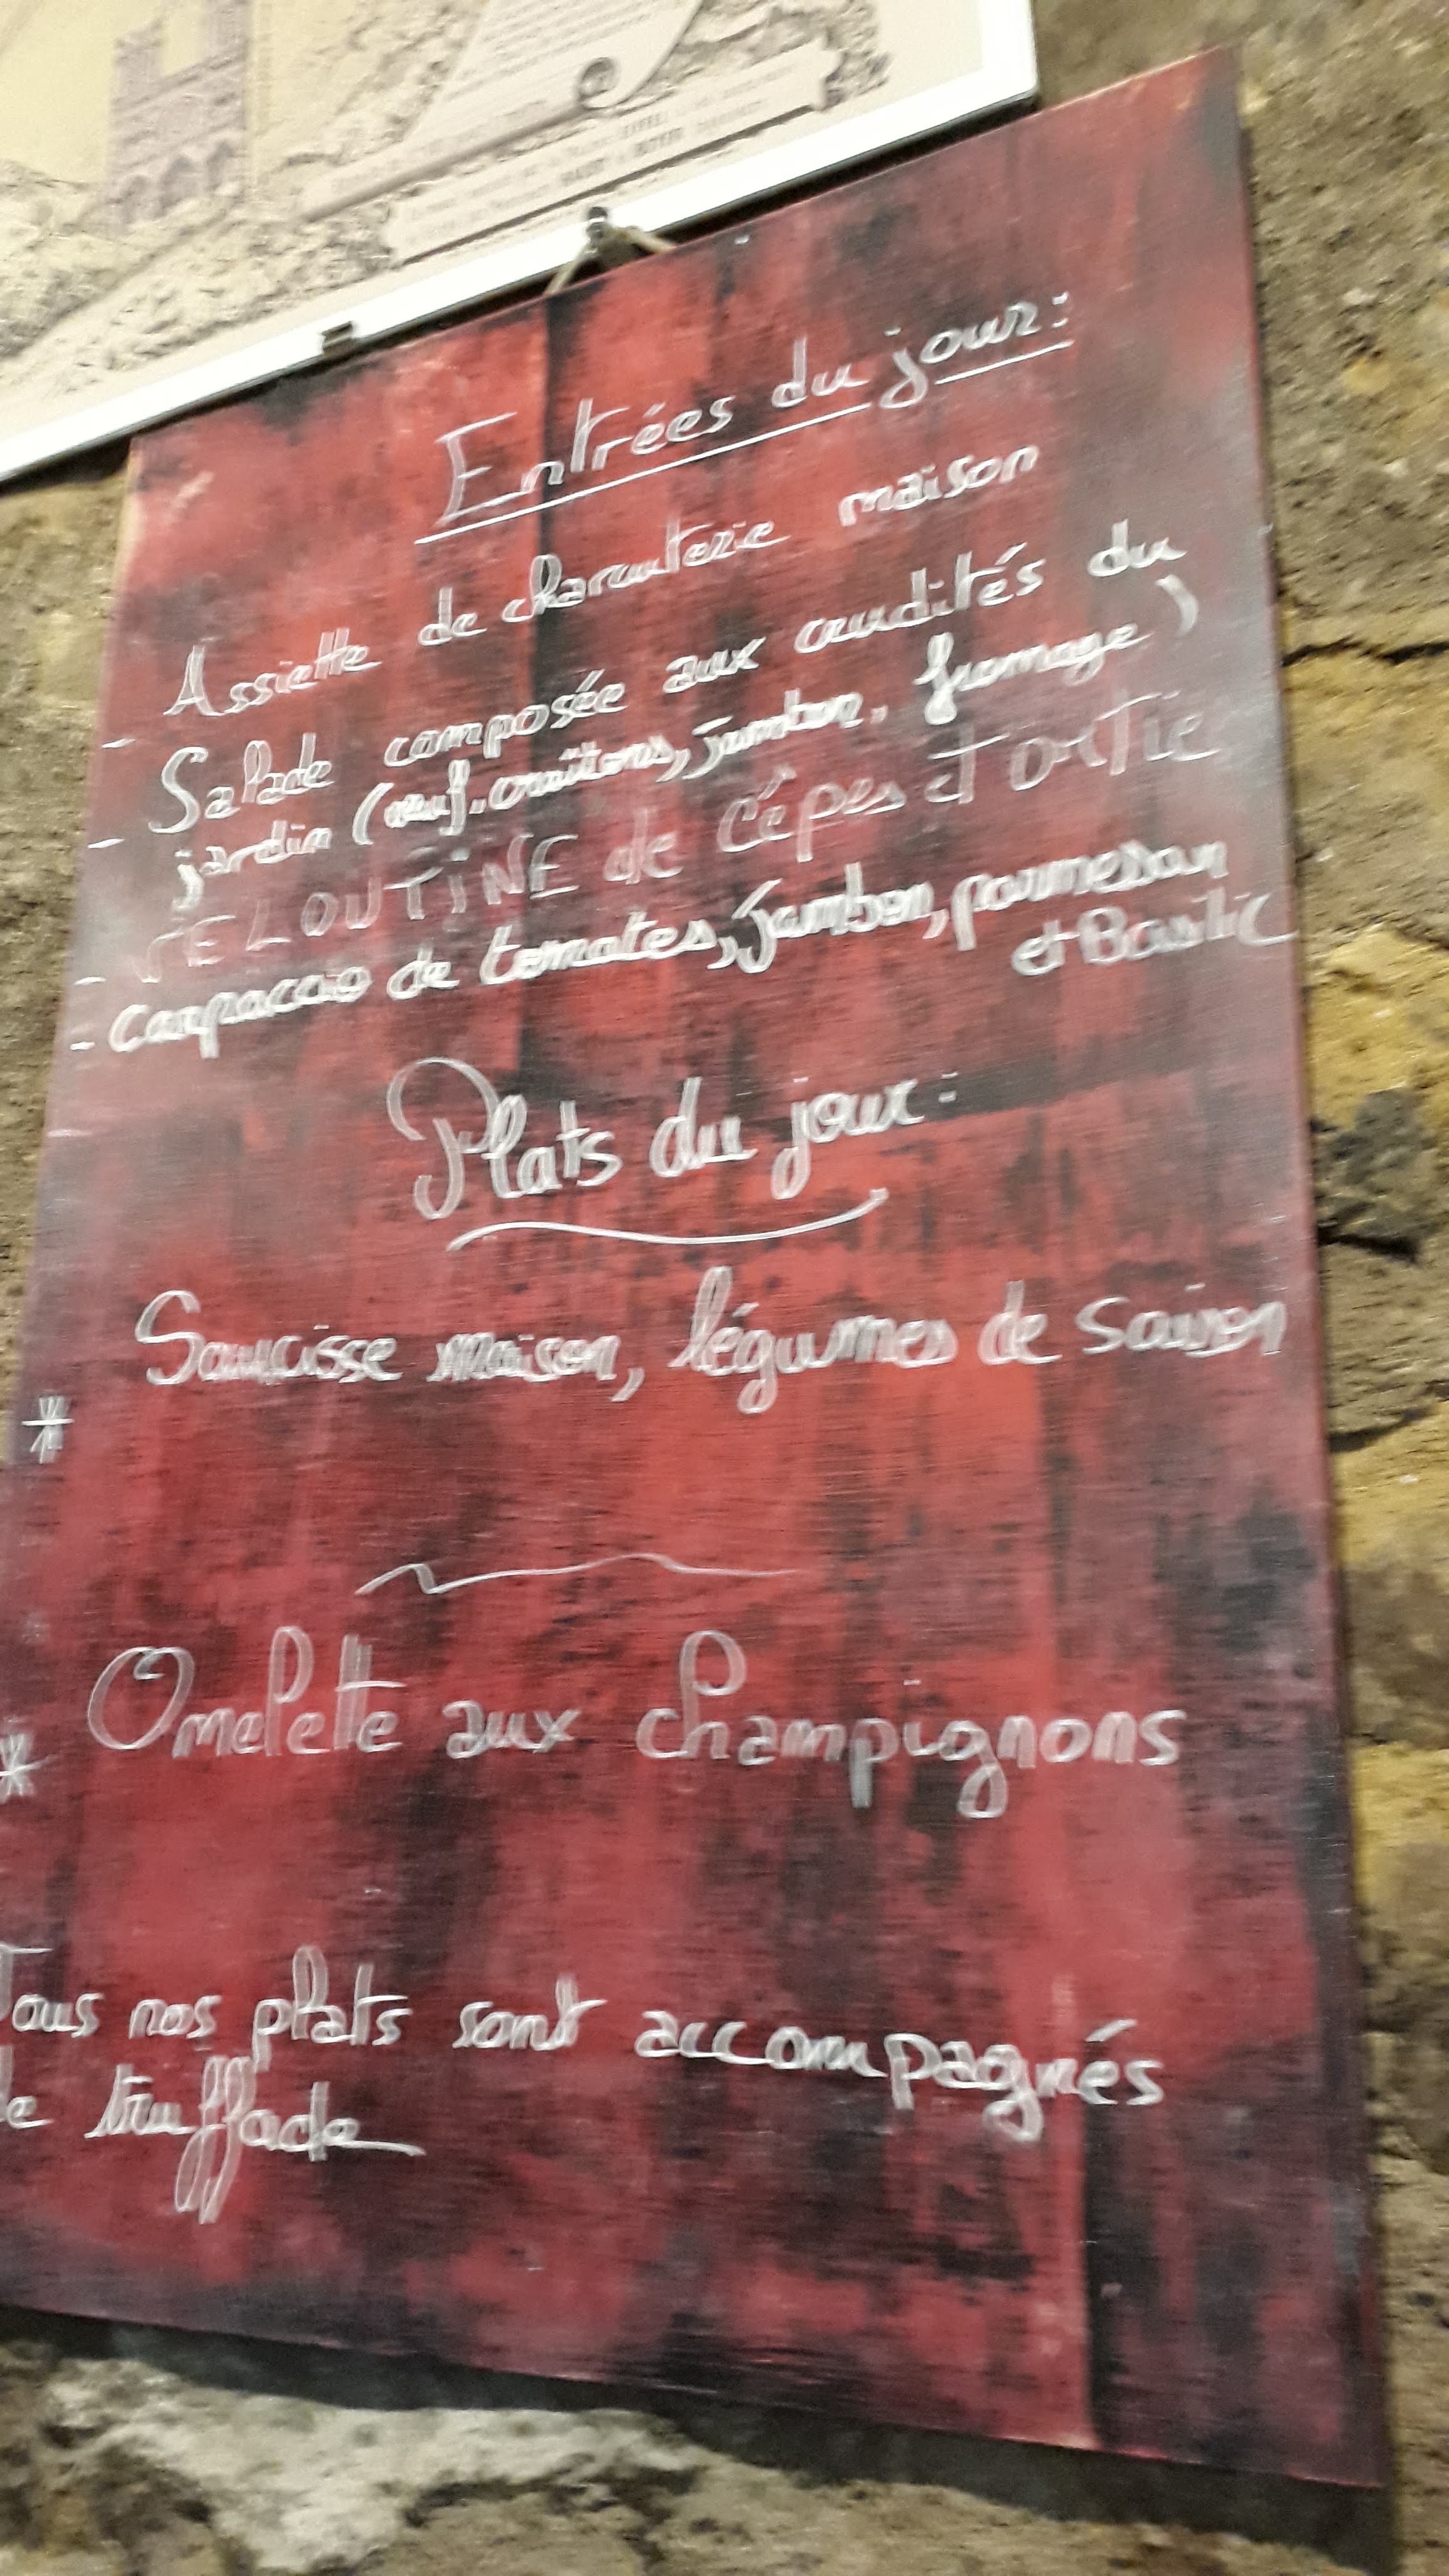 Entrées du jour:
- Assiette de charcuterie maison
- Salade composée aux crudités du
jardin (œuf, croûtons, jambon, fromage)
- VELOUTINE de Cépes et ortie
- carpaccio de tomates, jambon, parmesan
et Basilic
Plats du jour:
* Saucisse maison, légumes de Saison
* Omelette aux champignons
Tous nos plats sont accompagnés
de truffade